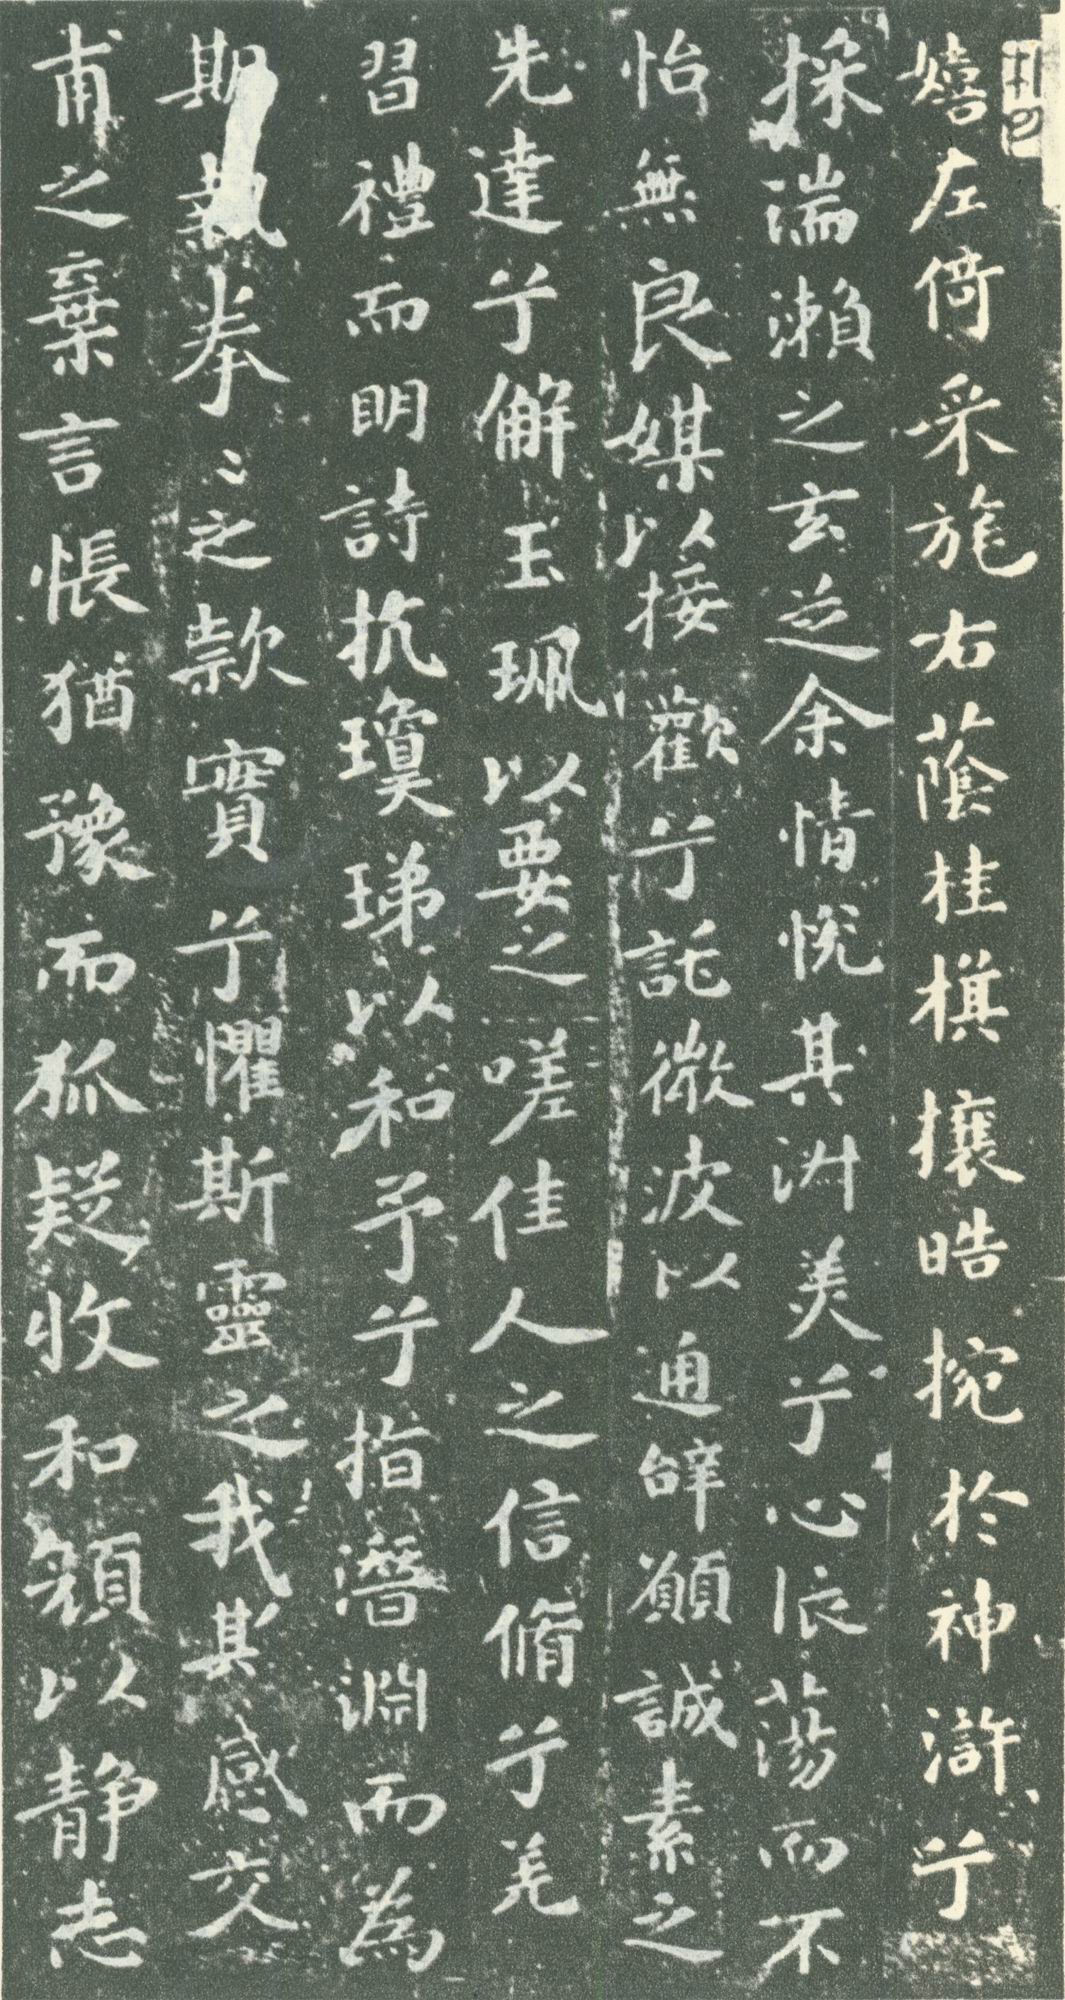 嬉左倚采旄右蔭桂棋攘皓捥於神滸兮
採湍瀨之玄芝余情悅其淋美兮心振蕩而不
怡無良媒以接歡兮託微波以通辝願誠素之
先達兮解玉珮以要之嗟佳人之信脩兮羌
習禮而明詩抗瓊珶以和予兮指潛淵而為
期執拳〻之款實兮懼斯靈之我欺感交
甫之棄言悵猶豫而狐疑收和顏以静志